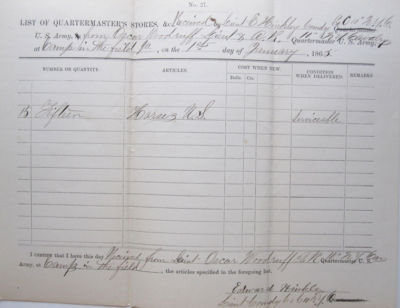 No. 21.
LIST OF QUARTERMASTER'S STORES, &c. Received by Lieut E. Hinkley Comdg Co. C 11" N.Y.C.
U. S. Army, from Oscar Woodruff Lieut & A. R. Quartermaster 11" N.Y. Cavalry U. S. Army,
at Camp in the field La, on the 1st day of January, 1865
NUMBER OR QUANTITY. ARTICLES. COST WHEN NEW. CONDITION WHEN DELIVERED. REMARKS.
Dolls. Cts.
15 Fifteen Horses U.S. Serviceable
I CERTIFY that I have this day Received from Lieut Oscar Woodruff A R. Quartermaster U. S.
Army, at Camp in the field, the articles specified in the foregoing list.
Edward Hinkley
Lieut Comdg Co C 11" N.Y. C